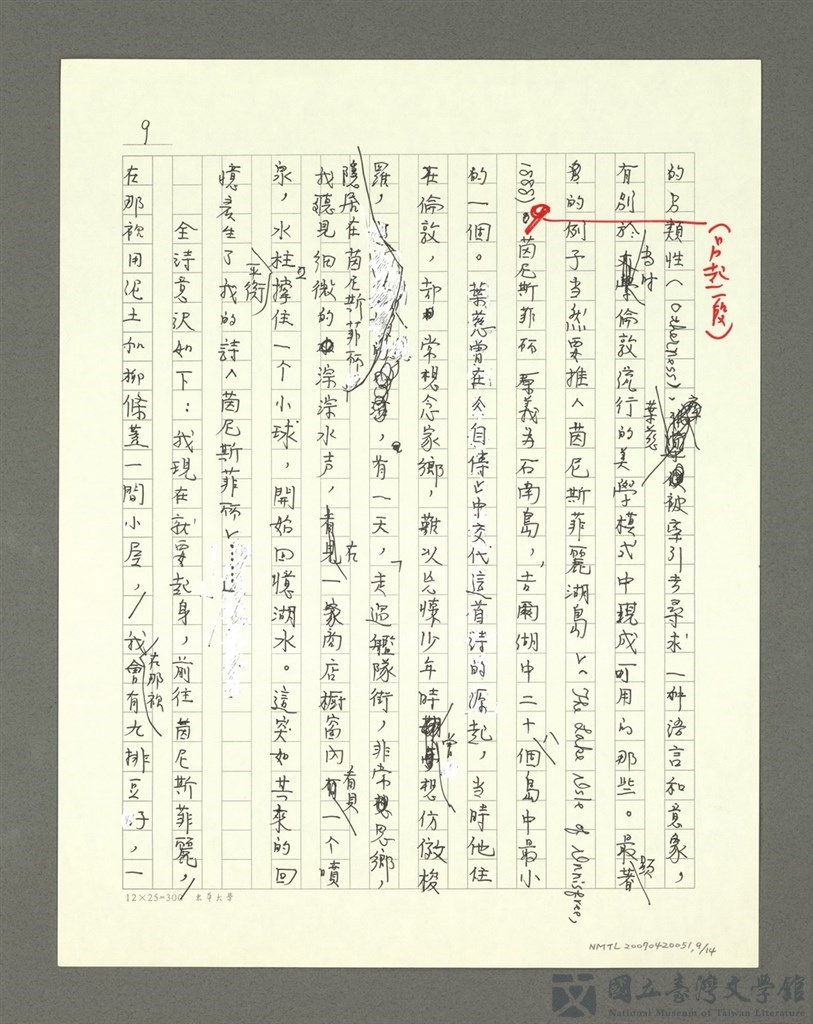 9
(另起一段)
的另類性(Otherness),葉慈被牽引去尋求一种語言和意象,
有別於當時倫敦流行的美學模式中現成可用的那些。最顯著
的例子当然要推〈茵尼斯菲麗湖島〉(The Lake Isle of Innisfree,
1888)。茵尼斯菲麗原義为石南島,吉爾湖中二十八個島中最小
的一個。葉慈曾在《自傳》中交代這首詩的源起,当時他住
在倫敦,却常想念家鄉,難以忘懷少年時常想仿傚梭
羅,隱居在茵尼斯菲麗,有一天,「走過艦隊街,非常思鄉,
我聽見細微的淙淙水声,在一家商店櫥窗內看見一个噴
泉,水柱上平衡一个小球,開始回憶湖水。這突如其來的回
憶產生了我的詩〈茵尼斯菲麗〉」
全詩意譯如下:我現在就要起身,前往茵尼斯菲麗,/
在那裡用泥土和柳條蓋一間小屋,/在那裡我會有九排豆子,一
12×25=300 東華大學
NMTL 20070420051, 9/14
國立臺灣文學館
National Museum of Taiwan Literature